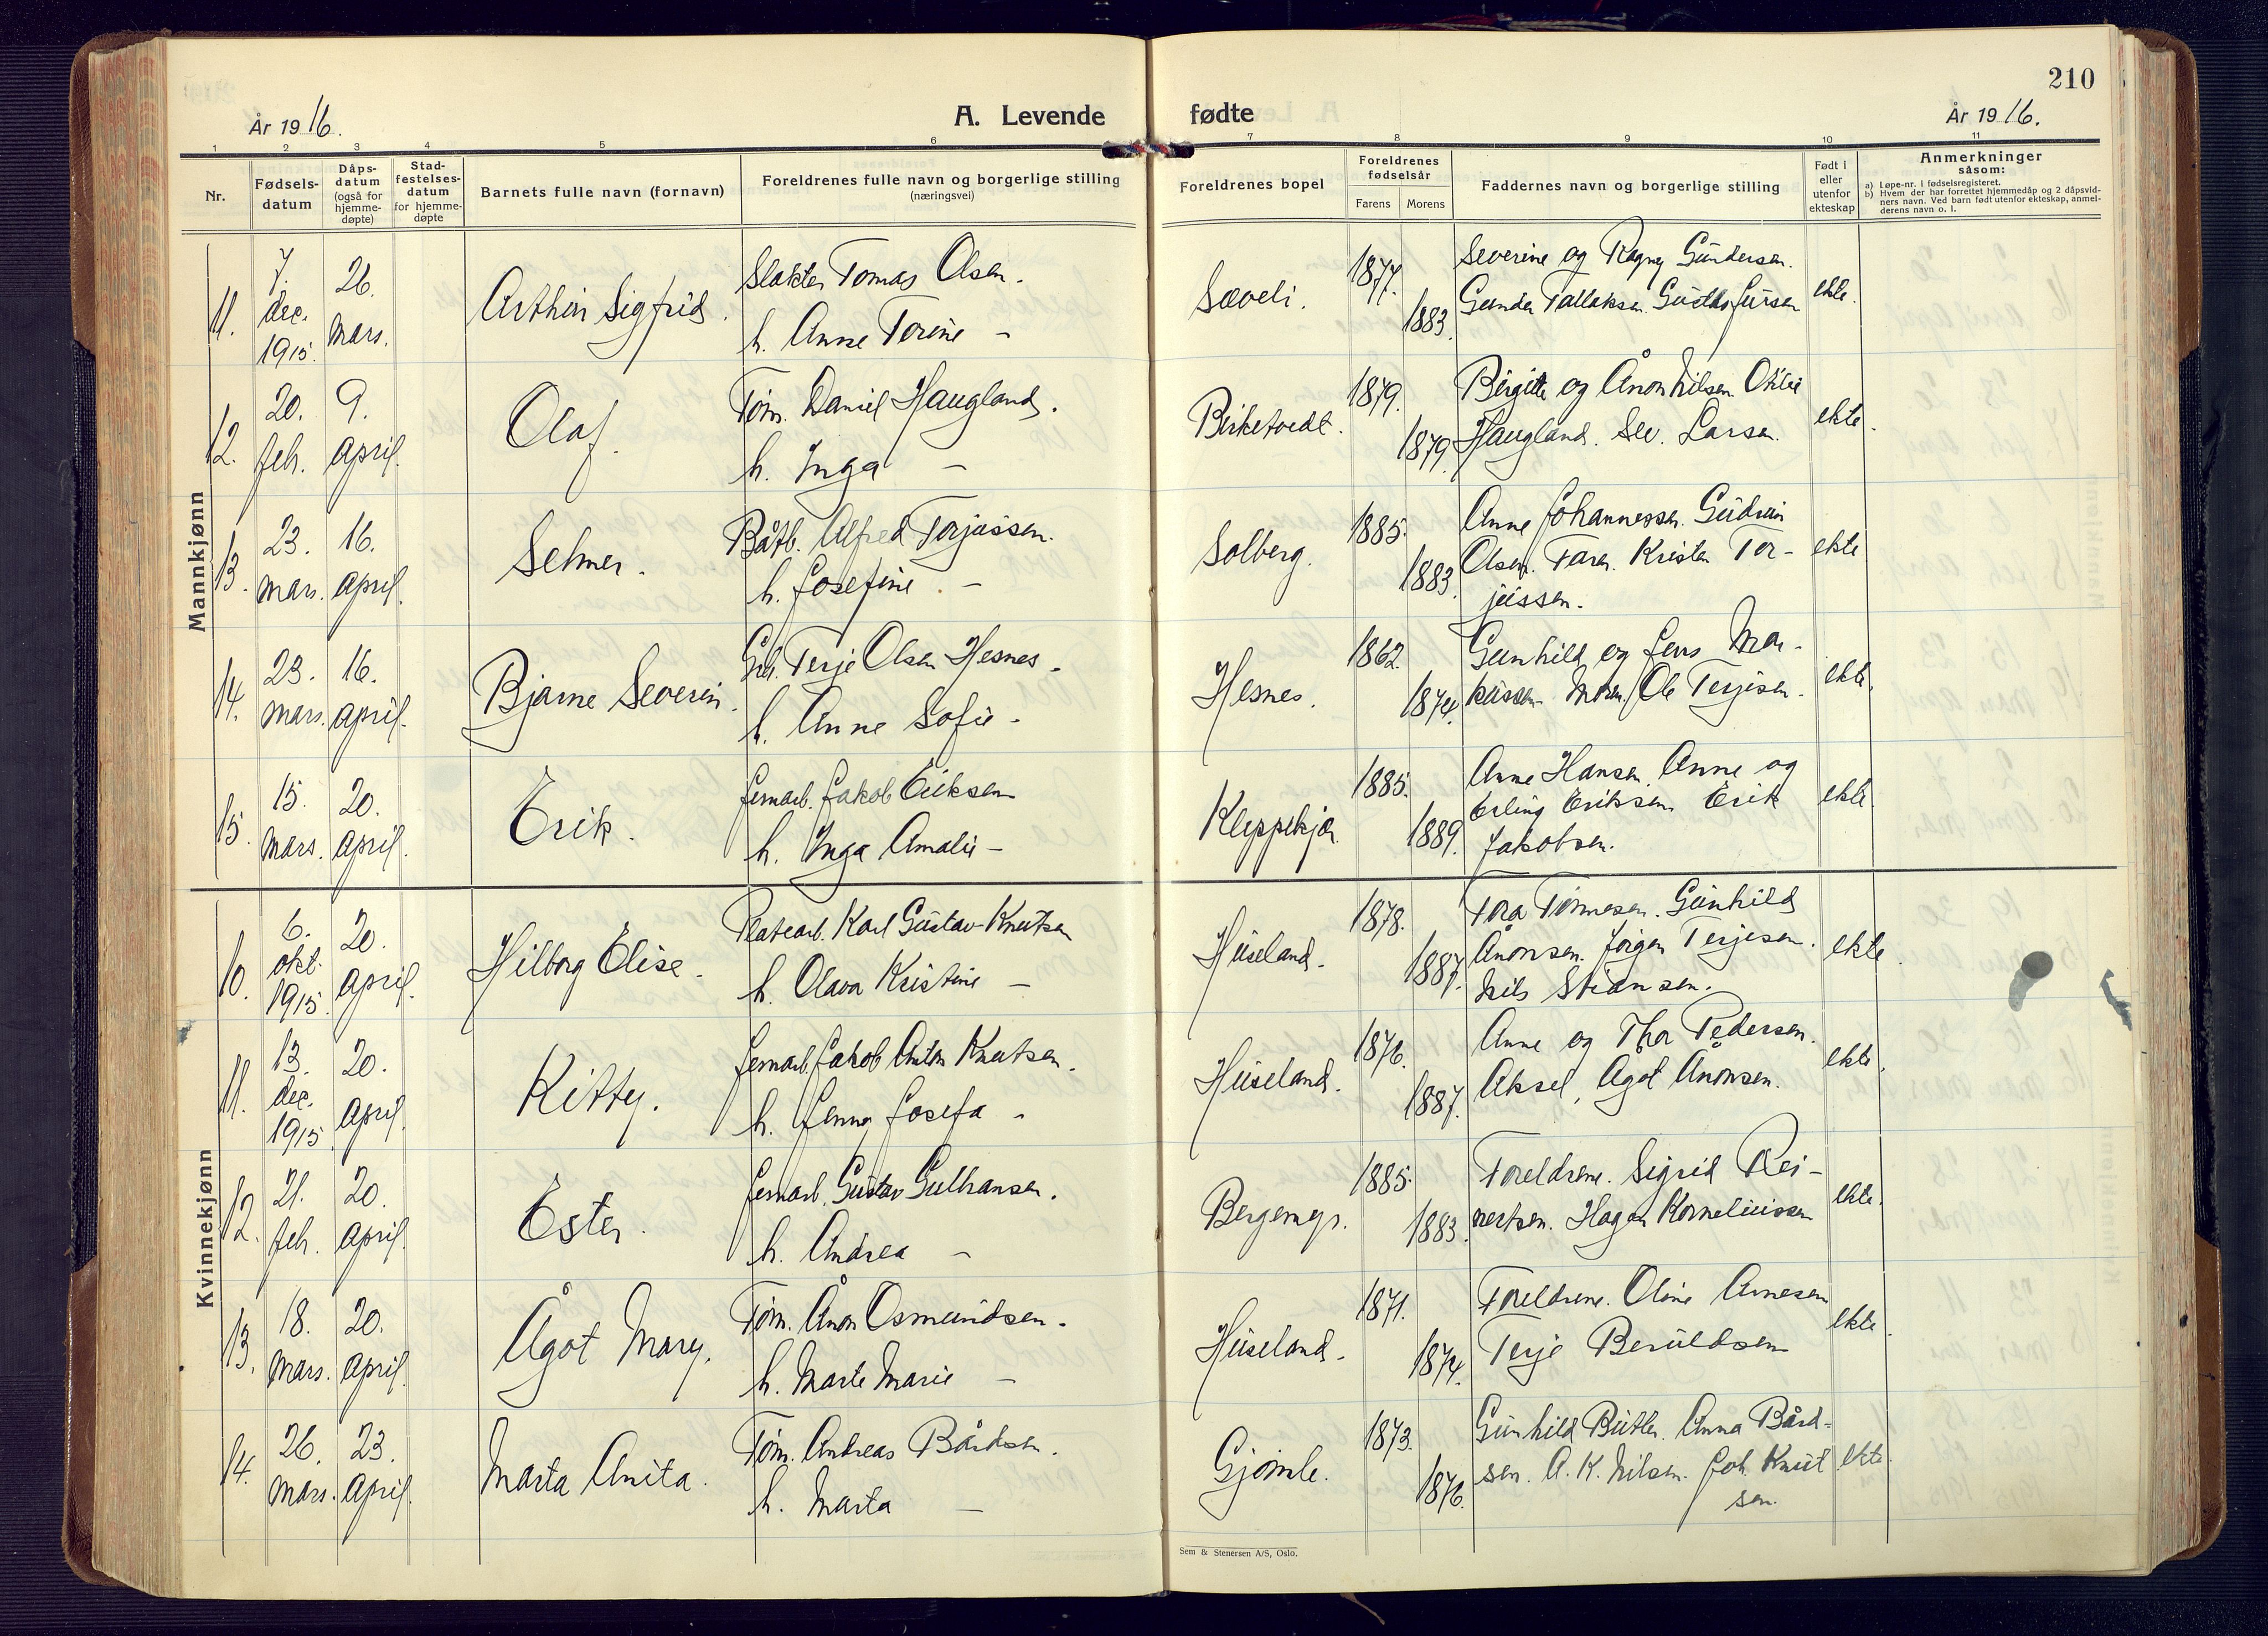 210
År 1916.
A. Levende fødte
År 1916.
1 2 3 4 5 6 7 8 9 10 11
Nr.
Fødsels-
datum
Dåps-
datum
(også for
hjemme-
døpte)
Stad-
festelses-
datum
for hjemme-
døpte
Barnets fulle navn (fornavn)
Foreldrenes fulle navn og borgerlige stilling
(næringsvei)
Foreldrenes bopel
Foreldrenes
fødselsår
Farens Morens
Faddernes navn og borgerlige stilling
Født i
eller
utenfor
ekteskap
Anmerkninger
såsom:
a) Løpe-nr. i fødselsregisteret.
b) Hvem der har forrettet hjemmedåp og 2 dåpsvid-
ners navn. Ved barn født utenfor ekteskap, anmel-
derens navn o. l.
Mannkjønn
11.
7.
dec.
1915.
26.
mars.
Arthur Sigfrid.
Slakter Tomas Olsen.
h. Anne Torine –
Sæveli.
1877.
1883.
Severine og Ragny Gundersen.
Gunder Tallaksen. Gustav
ekte.
12.
20.
feb.
9.
april.
Olaf.
Tøm. Daniel Haugland.
h. Inga –
Birketvedt.
1879.
1879.
Birgitte og Ånon Nilsen. Otilie
Haugland. Sev. Larsen.
ekte.
13.
23.
mars.
16.
april.
Selmer.
Båtb. Alfred Terjussen.
h. Josefine –
Solberg.
1885.
1883.
Anne Johannessen. Gudrun
Olsen. Faren. Kristen Ter-
jussen.
ekte
14.
23.
mars.
16.
april.
Bjarne Severin.
Grb. Terje Olsen Hesnes.
h. Anne Sofie –
Hesnes.
1862.
1874.
Gunhild og Jens Mar-
kussen. Moren. Ole Terjesen.
ekte.
15.
15.
mars.
20.
april.
Erik.
Jernarb. Jakob Eriksen
h. Inga Amalie –
Kleppekjær
1885.
1889.
Anne Hansen. Anne og
Erling Eriksen. Erik
Jakobsen.
ekte
Kvinnekjønn
10.
6.
okt.
1915.
20.
april.
Hilborg Elise.
Platearb. Karl Gustav Knutsen
h. Olava Kristine –
Huseland.
1878.
1887.
Tora Tønnesen. Gunhild
Ånonsen. Jørgen Terjesen.
Nils Stiansen.
ekte.
11.
13.
dec.
1915
20.
april.
Kitty.
Jernarb. Jakob Anton Knutsen.
h. Jenny Josefa –
Huseland.
1876.
1887.
Anne og Thor Pedersen.
Aksel, Ågot Ånonsen.
ekte.
12.
21.
feb.
20.
april.
Ester.
Jernarb. Gustav Gulbransen.
h. Andrea –
Bergemyr.
1885.
1883.
Foreldrene. Sigrid Rei-
nertsen. Hagen Korneliussen
ekte.
13.
18.
mars.
20.
april.
Ågot Mary.
Tøm. Ånon Osmundsen.
h. Marte Marie –
Huseland.
1871.
1874.
Foreldrene. Oline Arnesen
Terje Beruldsen
ekte.
14.
26.
mars.
23.
april.
Marta Anita.
Tøm. Andreas Bårdsen.
h. Marta –
Gjømle.
1873.
1876.
Gunhild Anna Bård-
sen. A. K. Nilsen. Joh. Knut
sen.
ekte.
Sem & Stenersen A/S, Oslo.